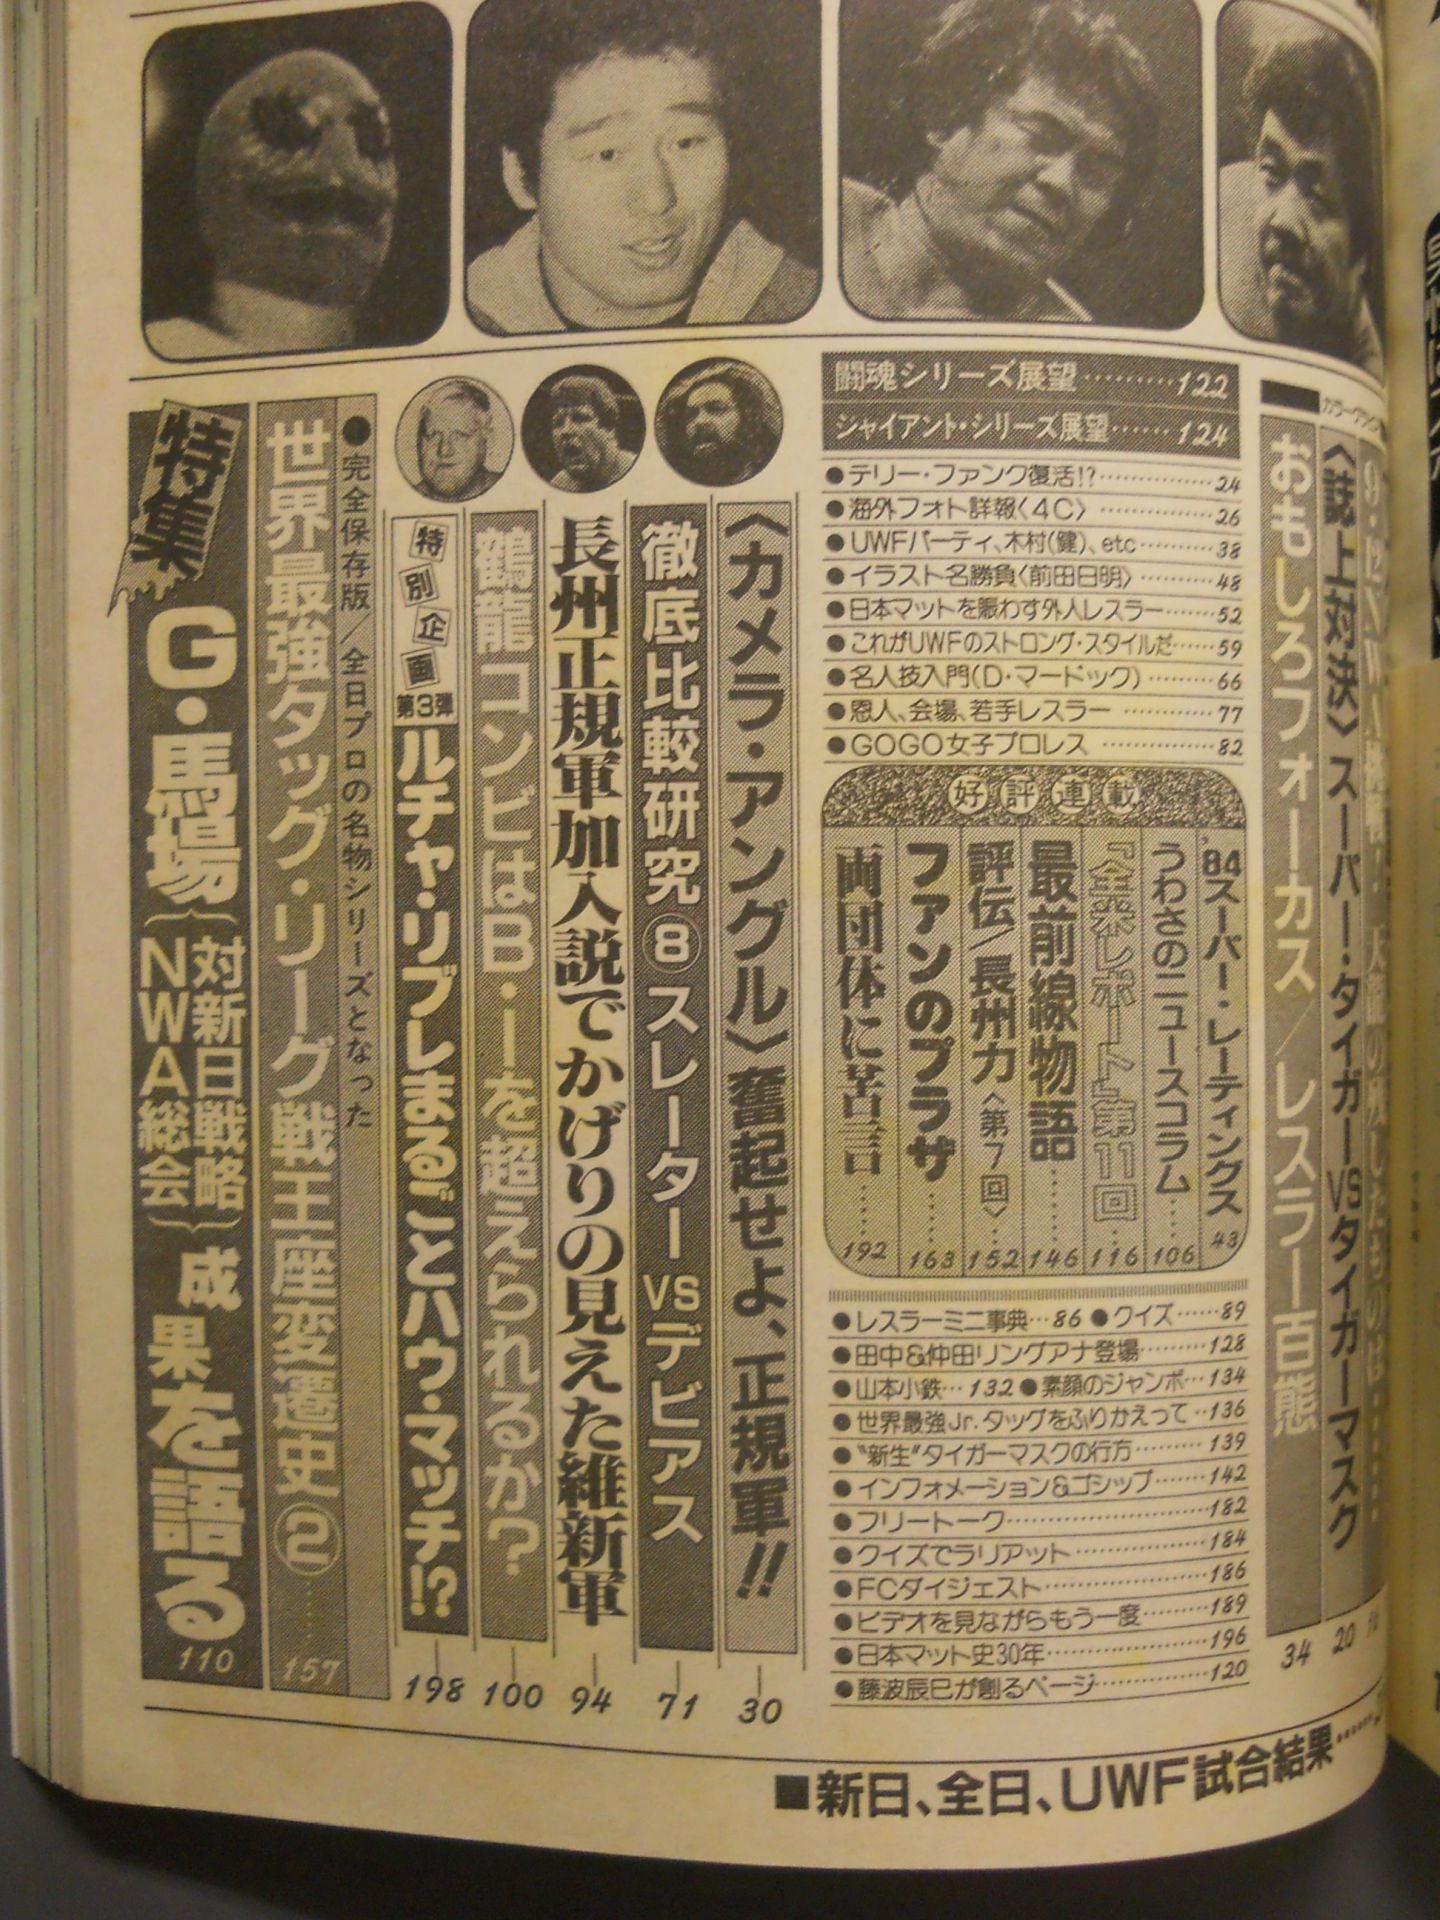 〈誌上対決〉スーパー・タイガーVSタイガーマスク 20
おもしろフォーカス/レスラー百態 34
闘魂シリーズ展望………122
ジャイアント・シリーズ展望……124
●テリー・ファンク復活!?……………24
●海外フォト詳報〈4C〉……………26
●UWFパーティ、木村(健)、etc………38
●イラスト名勝負〈前田日明〉………48
●日本マットを賑わす外人レスラー……52
●これがUWFのストロング・スタイルだ……59
●名人技入門(D・マードック)………66
●恩人、会場、若手レスラー…………77
●GOGO女子プロレス……………82
好評連載
'84スーパー・レーティングス 43
うわさのニュースコラム……106
『全米レポート』第11回 116
最前線物語……146
評伝/長州力〈第7回〉…152
ファンのプラザ……163
両団体に苦言……192
●レスラーミニ事典…86 ●クイズ……89
●田中&仲田リングアナ登場………128
●山本小鉄…132 ●素顔のジャンボ…134
●世界最強Jr.タッグをふりかえって…136
●"新生"タイガーマスクの行方………139
●インフォメーション&ゴシップ……142
●フリートーク……………182
●クイズでラリアット……………184
●FCダイジェスト……………186
●ビデオを見ながらもう一度………189
●日本マット史30年……………196
●藤波辰巳が創るページ…………120
〈カメラ・アングル〉奮起せよ、正規軍!! 30
徹底比較研究⑧スレーターVSデビアス 71
長州正規軍加入説でかげりの見えた維新軍 94
鶴龍コンビはB・Iを超えられるか? 100
特別企画 第3弾 ルチャ・リブレまるごとハウ・マッチ!? 198
●完全保存版/全日プロの名物シリーズとなった
世界最強タッグ・リーグ戦王座変遷史②……157
特集 G・馬場{対新日戦略 NWA総会}成果を語る 110
■新日、全日、UWF試合結果……